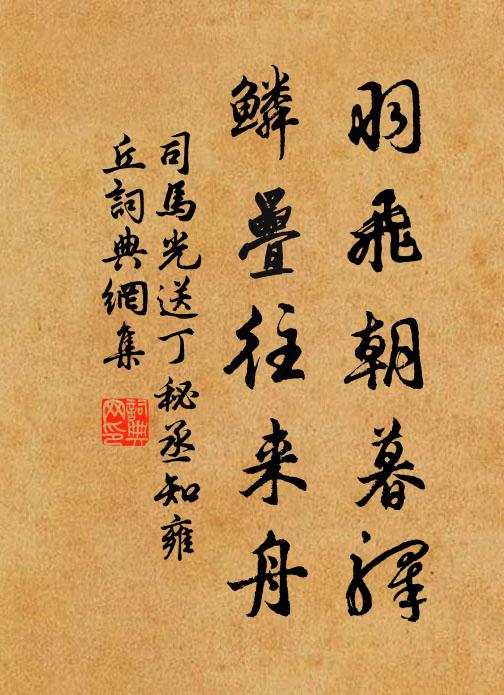 羽飛朝暮驛
鱗疊往来舟
司馬光送丁秘丞知雍
丘詞典網集
詞典网印